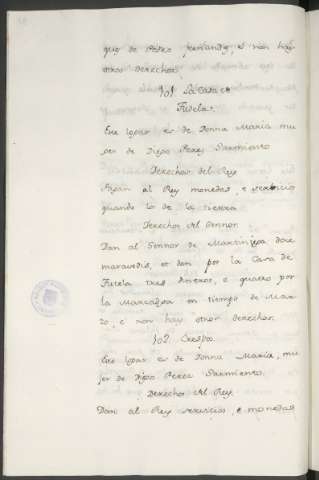 que de Pedro Fernandez, e non hay
otros derechos.
101 La Casa de
Tudela.
Este logar es de Donna Maria mu
ger de Diego Perez Sarmiento
Derechos del Rey
Pagan al Rey monedas, e servicios
quando lo de la tierra
Derechos del Sennor
Dan al Sennor de Martiniega doce
maravedis, et dan por la Casa de
Tudela tres dineros, e quatro por
la Marzadga en tiempo de Mar
zo, e non hay otros derechos.
102 Crespo
Este logar es de Donna Maria, mu
jer de Diego Perez Sarmiento.
Derechos del Rey
Dan al Rey servicios, e monedas